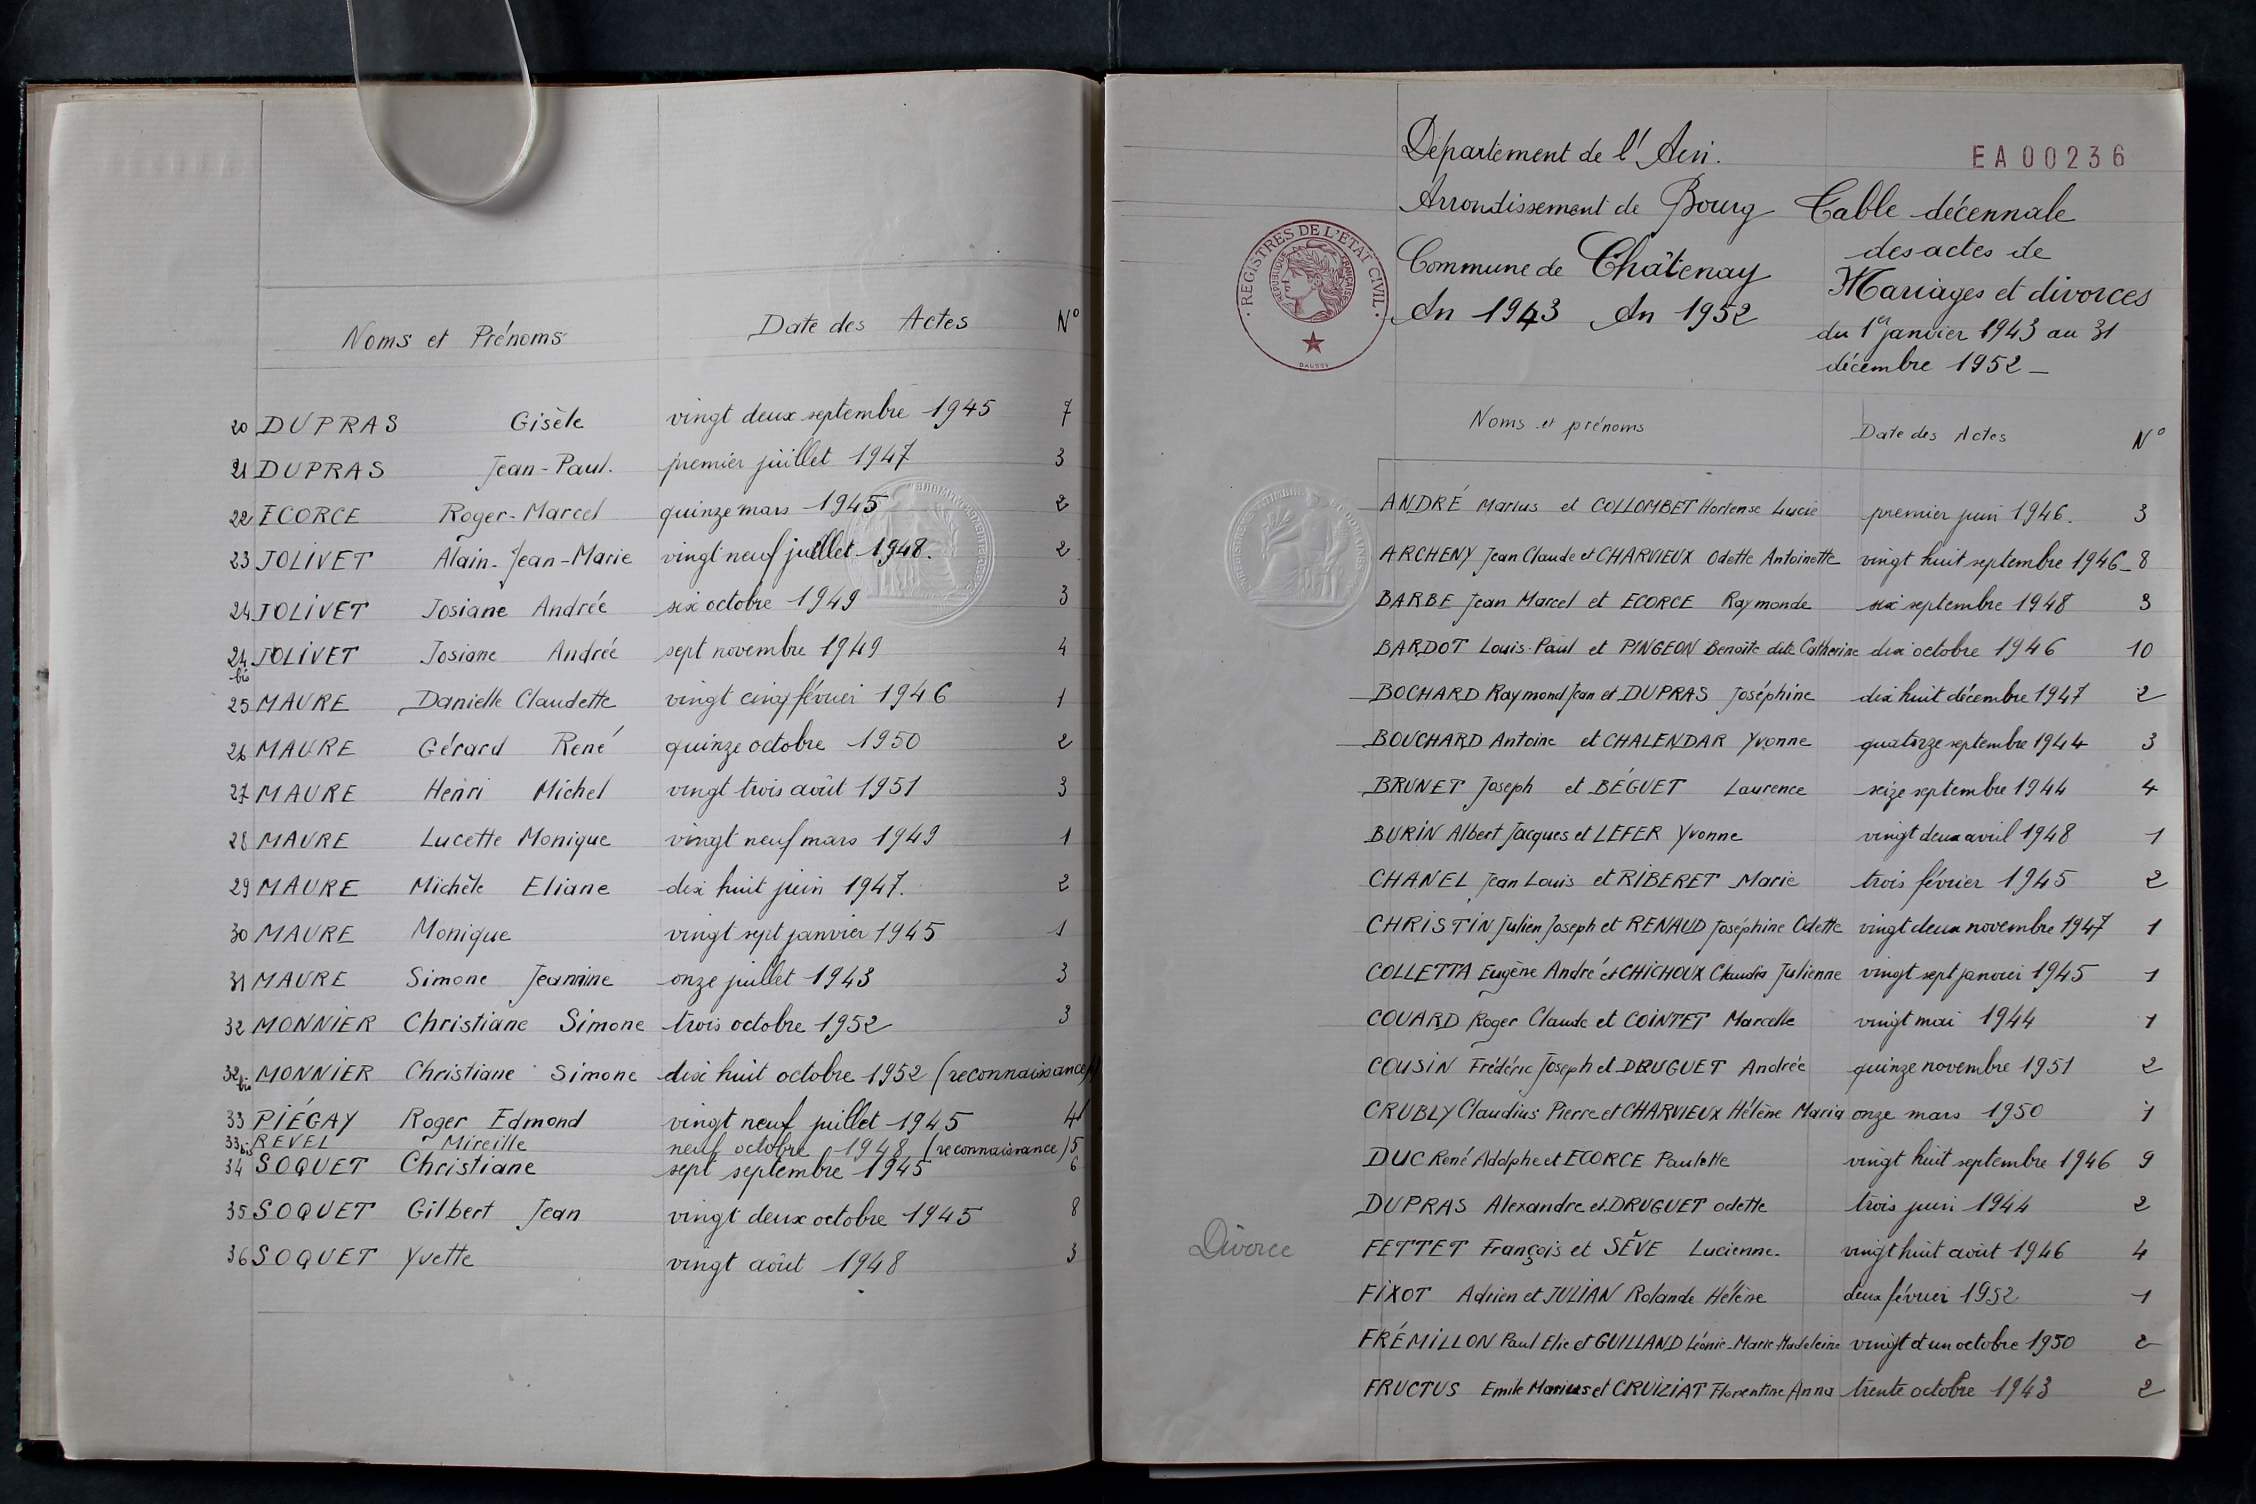 Noms et Prénoms Date des Actes N°
20 DUPRAS Gisèle vingt deux septembre 1945 7
21 DUPRAS Jean-Paul. premier juillet 1947 3
22 ECORCE Roger-Marcel quinze mars 1945 2
23 JOLIVET Alain-Jean-Marie vingt neuf juillet 1948. 2
24 JOLIVET Josiane Andrée six octobre 1949 3
24 bis JOLIVET Josiane Andrée sept novembre 1949 4
25 MAURE Danielle Claudette vingt cinq février 1946 1
26 MAURE Gérard René quinze octobre 1950 2
27 MAURE Henri Michel vingt trois août 1951 3
28 MAURE Lucette Monique vingt neuf mars 1949 1
29 MAURE Michèle Eliane dix huit juin 1947. 2
30 MAURE Monique vingt sept janvier 1945 1
31 MAURE Simone Jeannine onze juillet 1943 3
32 MONNIER Christiane Simone trois octobre 1952 3
32 bis MONNIER Christiane Simone dix huit octobre 1952 (reconnaissance)
33 PIÉGAY Roger Edmond vingt neuf juillet 1945 4
33 bis REVEL Mireille neuf octobre 1948 (reconnaissance) 5
34 SOQUET Christiane sept septembre 1945 6
35 SOQUET Gilbert Jean vingt deux octobre 1945 8
36 SOQUET Yvette vingt août 1948 3
Département de l'Ain.
EA00236
Arrondissement de Bourg
Commune de Châtenay
An 1943 An 1952
Table décennale
des actes de
Mariages et divorces
du 1er janvier 1943 au 31
décembre 1952
REGISTRES DE L'ÉTAT CIVIL
RÉPUBLIQUE FRANÇAISE
Noms et prénoms Date des Actes N°
ANDRÉ Marius et COLLOMBET Hortense Lucie premier juin 1946. 3
ARCHENY Jean Claude et CHARVIEUX Odette Antoinette vingt huit septembre 1946 8
BARBE Jean Marcel et ECORCE Raymonde six septembre 1948 3
BARDOT Louis-Paul et PINGEON Benoite dite Catherine dix octobre 1946 10
BOCHARD Raymond Jean et DUPRAS Joséphine dix huit décembre 1947 2
BOUCHARD Antoine et CHALENDAR Yvonne quatorze septembre 1944 3
BRUNET Joseph et BÉGUET Laurence seize septembre 1944 4
BURIN Albert Jacques et LEFER Yvonne vingt deux avril 1948 1
CHANEL Jean Louis et RIBERET Marie trois février 1945 2
CHRISTIN Julien Joseph et RENAUD Joséphine Odette vingt deux novembre 1947 1
COLLETTA Eugène André et CHICHOUX Claudia Julienne vingt sept janvier 1945 1
COUARD Roger Claude et COINTET Marcelle vingt mai 1944 1
COUSIN Frédéric Joseph et DRUGUET Andrée quinze novembre 1951 2
CRUBLY Claudius Pierre et CHARVIEUX Hélène Maria onze mars 1950 1
DUC René Adolphe et ECORCE Paulette vingt huit septembre 1946 9
DUPRAS Alexandre et DRUGUET Odette trois juin 1944 2
Divorce FETTET François et SÈVE Lucienne. vingt huit août 1946 4
FIXOT Adrien et JULIAN Rolande Hélène deux février 1952 1
FRÉMILLON Paul Elie et GUILLAND Léonie-Marie-Madeleine vingt et un octobre 1950 2
FRUCTUS Emile Marius et CRUIZIAT Florentine Anna trente octobre 1943 2